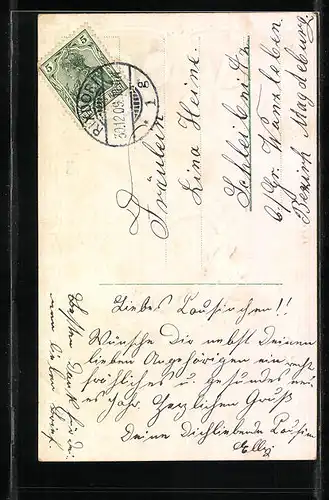 5
30.12.09.
Fräulein
Lina Heine
Schleibnitz
b/ Gr. Wanzleben
Bezirk Magdeburg
Liebes Cousinchen!!
Wünsche Dir nebst Deinen
lieben Angehörigen ein recht
fröhliches u. gesundes neu-
es Jahr. Herzlichen Gruß
Deine Dichliebende Cousine
Elly
Besten Dank für dei-
nen lieben Brief.